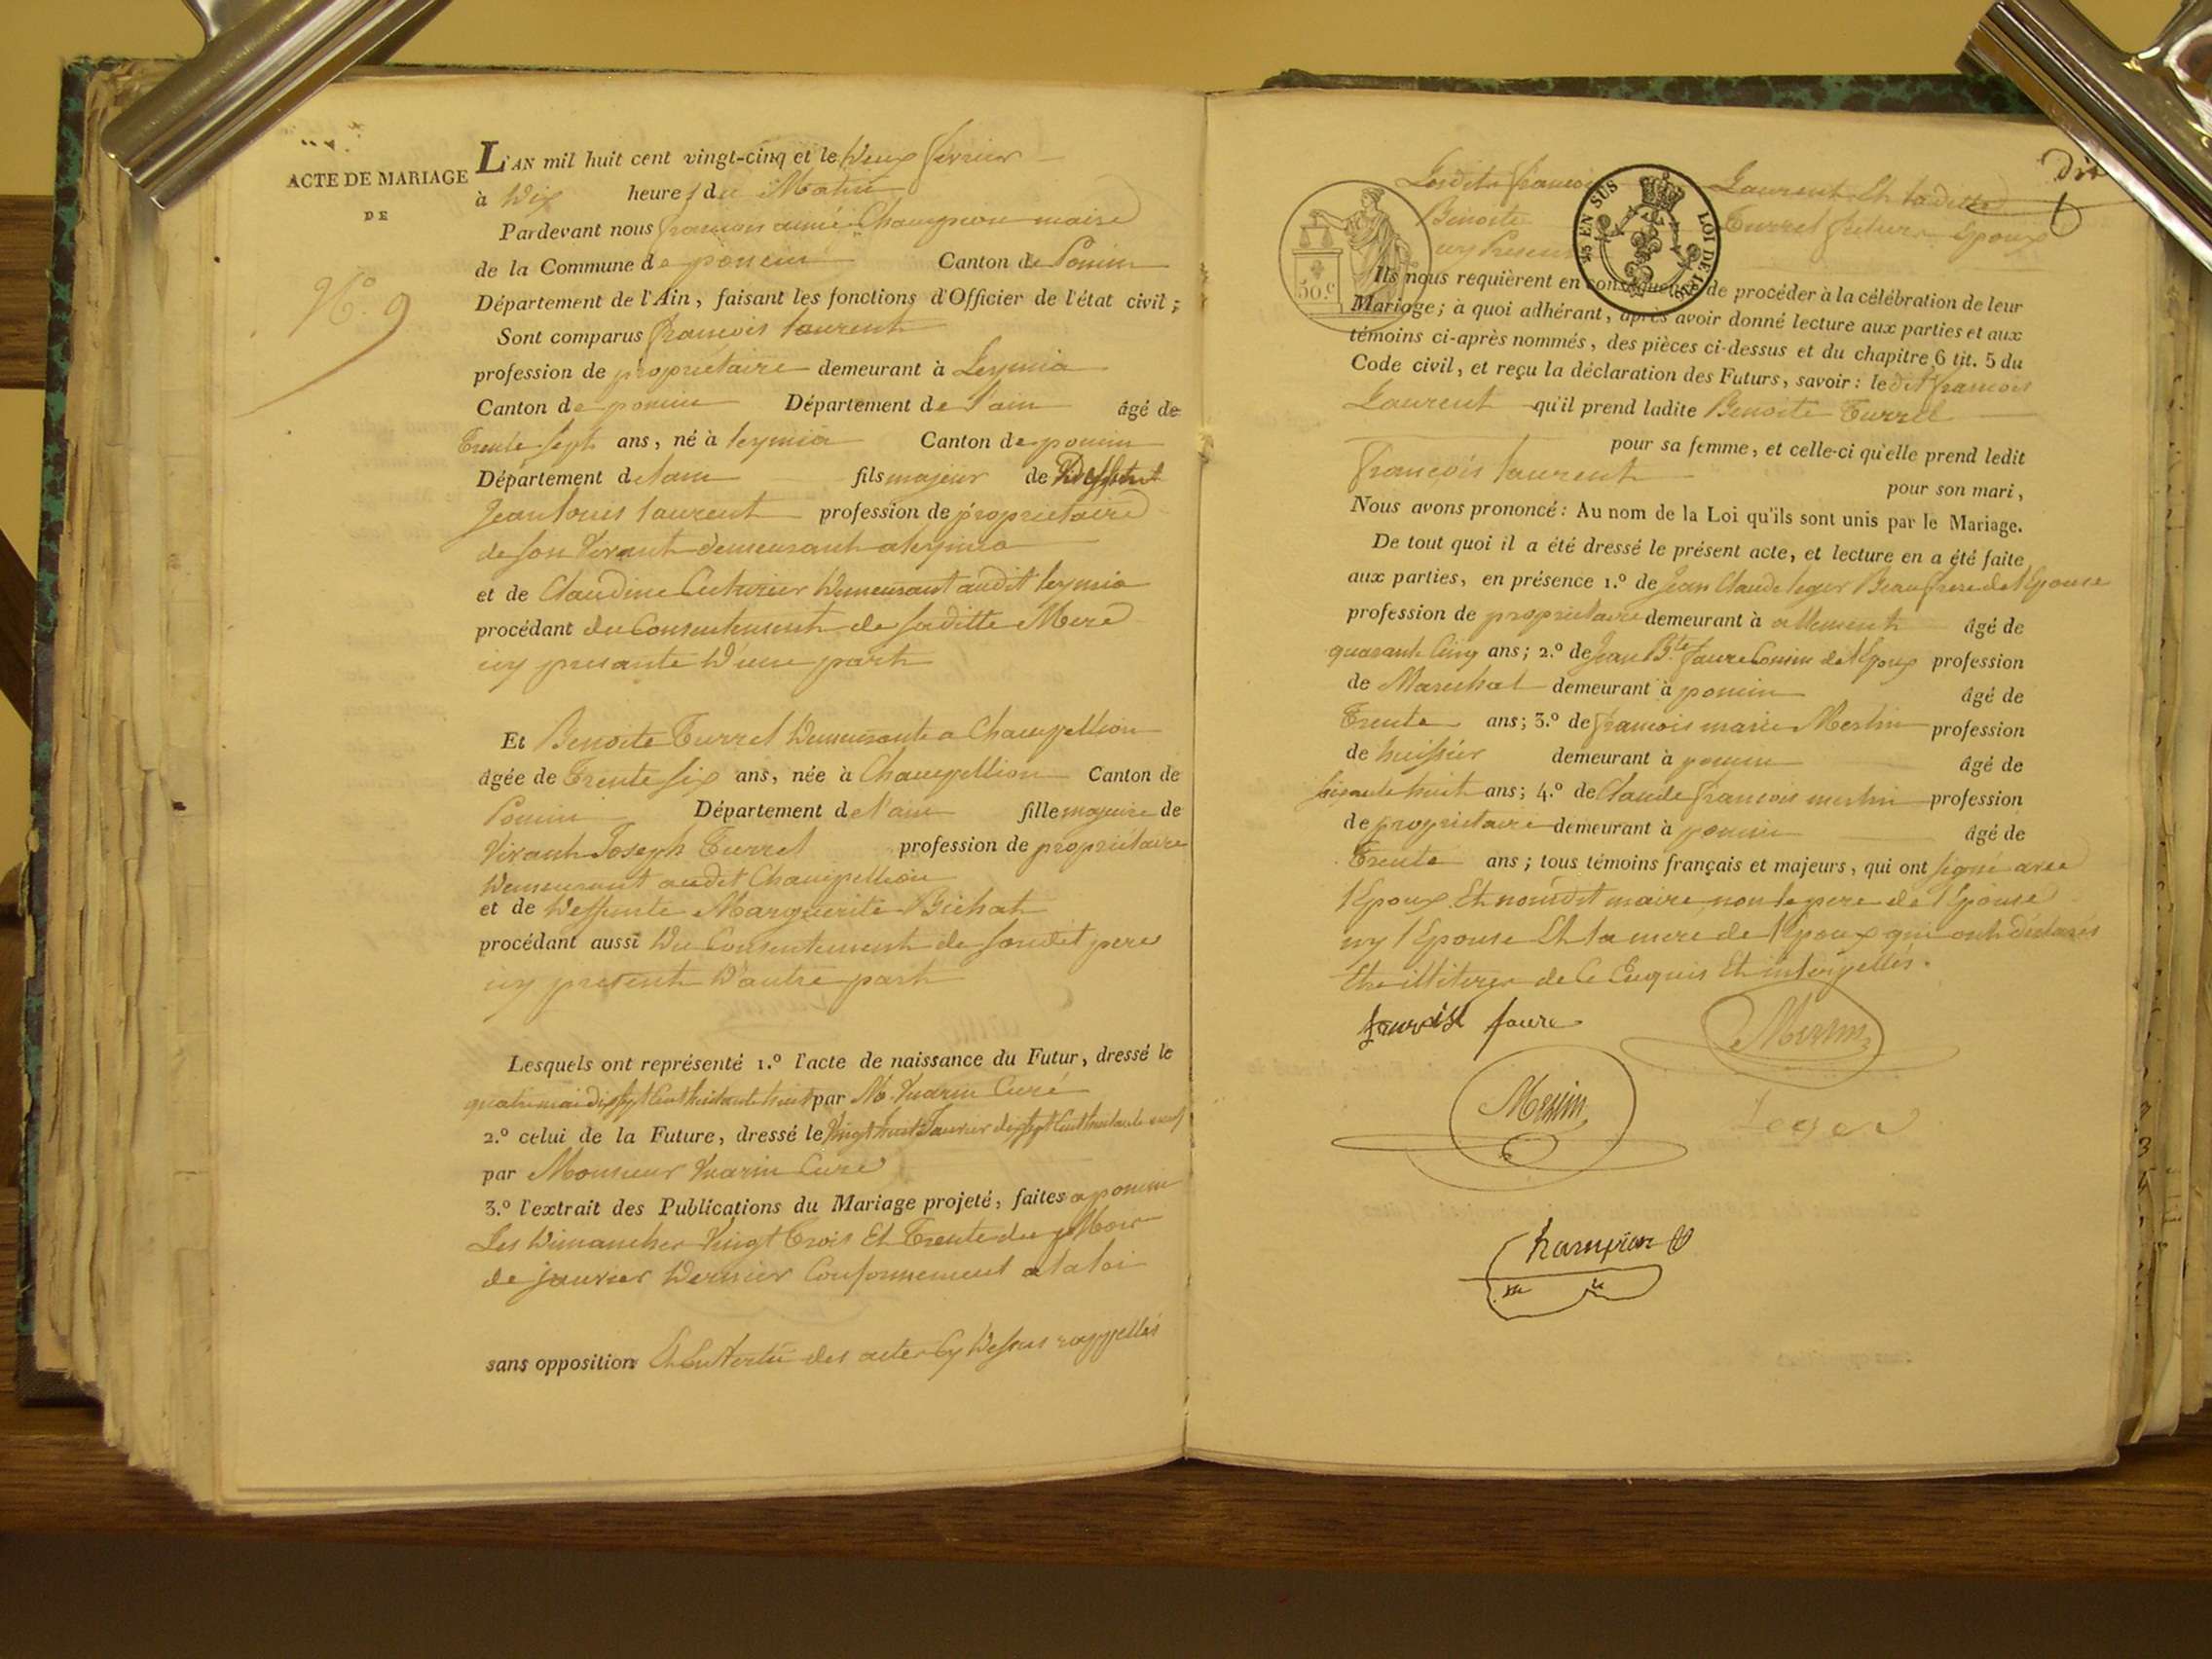 ACTE DE MARIAGE
DE
N.° 9
L'AN mil huit cent vingt-cinq et le deux février
à dix heures du Matin
Pardevant nous francois aimé Champion maire
de la Commune de poncin Canton de Poncin
Département de l'Ain, faisant les fonctions d'Officier de l'état civil;
Sont comparus francois laurent
profession de proprietaire demeurant à Leymia
Canton de poncin Département de l'ain âgé de
Trente sept ans, né à leymia Canton de poncin
Département de lain fils majeur de Deffunt
Jean louis laurent profession de proprietaire
de son Vivant demeurant a leymia
et de Claudine Cuturier demeurant audit leymia
procédant du Consentement de saditte Mere
icy presante D'une part
Et Benoite Turrel demeurante a Champellion
âgée de Trente six ans, née à Champellion Canton de
Poncin Département de l'ain fille majeure de
Vivant Joseph Turrel profession de propriétaire
demeurant audit Champellion
et de deffunte Marguerite Bichat
procédant aussi du Consentement de sondit pere
icy present D'autre part
Lesquels ont représenté 1.° l'acte de naissance du Futur, dressé le
quatre mai dix sept Cent huitante huit par Mr. Curé
2.° celui de la Future, dressé le Vingt huit Janvier dix sept Cent huitante neuf
par Monsieur Curé
3.° l'extrait des Publications du Mariage projeté, faites a poncin
Les dimanches Vingt Trois Et Trente du Mois
de janvier dernier Conformement a la loi
sans opposition Et En Vertu des actes Cy dessus rappellés
Ledits francois Laurent Et laditte
Benoite Turrel futurs Epoux
icy Presents
50.c
25 EN SUS LOI DE
Ils nous requièrent en conséquence de procéder à la célébration de leur
Mariage; à quoi adhérant, après avoir donné lecture aux parties et aux
témoins ci-après nommés, des pièces ci-dessus et du chapitre 6 tit. 5 du
Code civil, et reçu la déclaration des Futurs, savoir: ledit francois
Laurent qu'il prend ladite Benoite Turrel
pour sa femme, et celle-ci qu'elle prend ledit
françois laurent
pour son mari,
Nous avons prononcé: Au nom de la Loi qu'ils sont unis par le Mariage.
De tout quoi il a été dressé le présent acte, et lecture en a été faite
aux parties, en présence 1.° de Jean Claude leger Beau frere de l'Epouse
profession de proprietaire demeurant à allement âgé de
quarante Cinq ans; 2.° de Jean Bte faure Cousin de l'Epoux profession
de Marichal demeurant à poncin âgé de
Trente ans; 3.° de francois marie Merlin profession
de huissier demeurant à poncin âgé de
soixante huit ans; 4.° de Claude francois merlin profession
de proprietaire demeurant à poncin âgé de
Trente ans; tous témoins français et majeurs, qui ont signé avec
l'Epoux Et nousdit maire non le pere de l'Epouse
ny l'Epouse Et la mere de l'Epoux qui ont déclarés
Etre illiterer de Ce Enquis Et interpellés.
faure
Merlin
Merlin
Leger
Champion